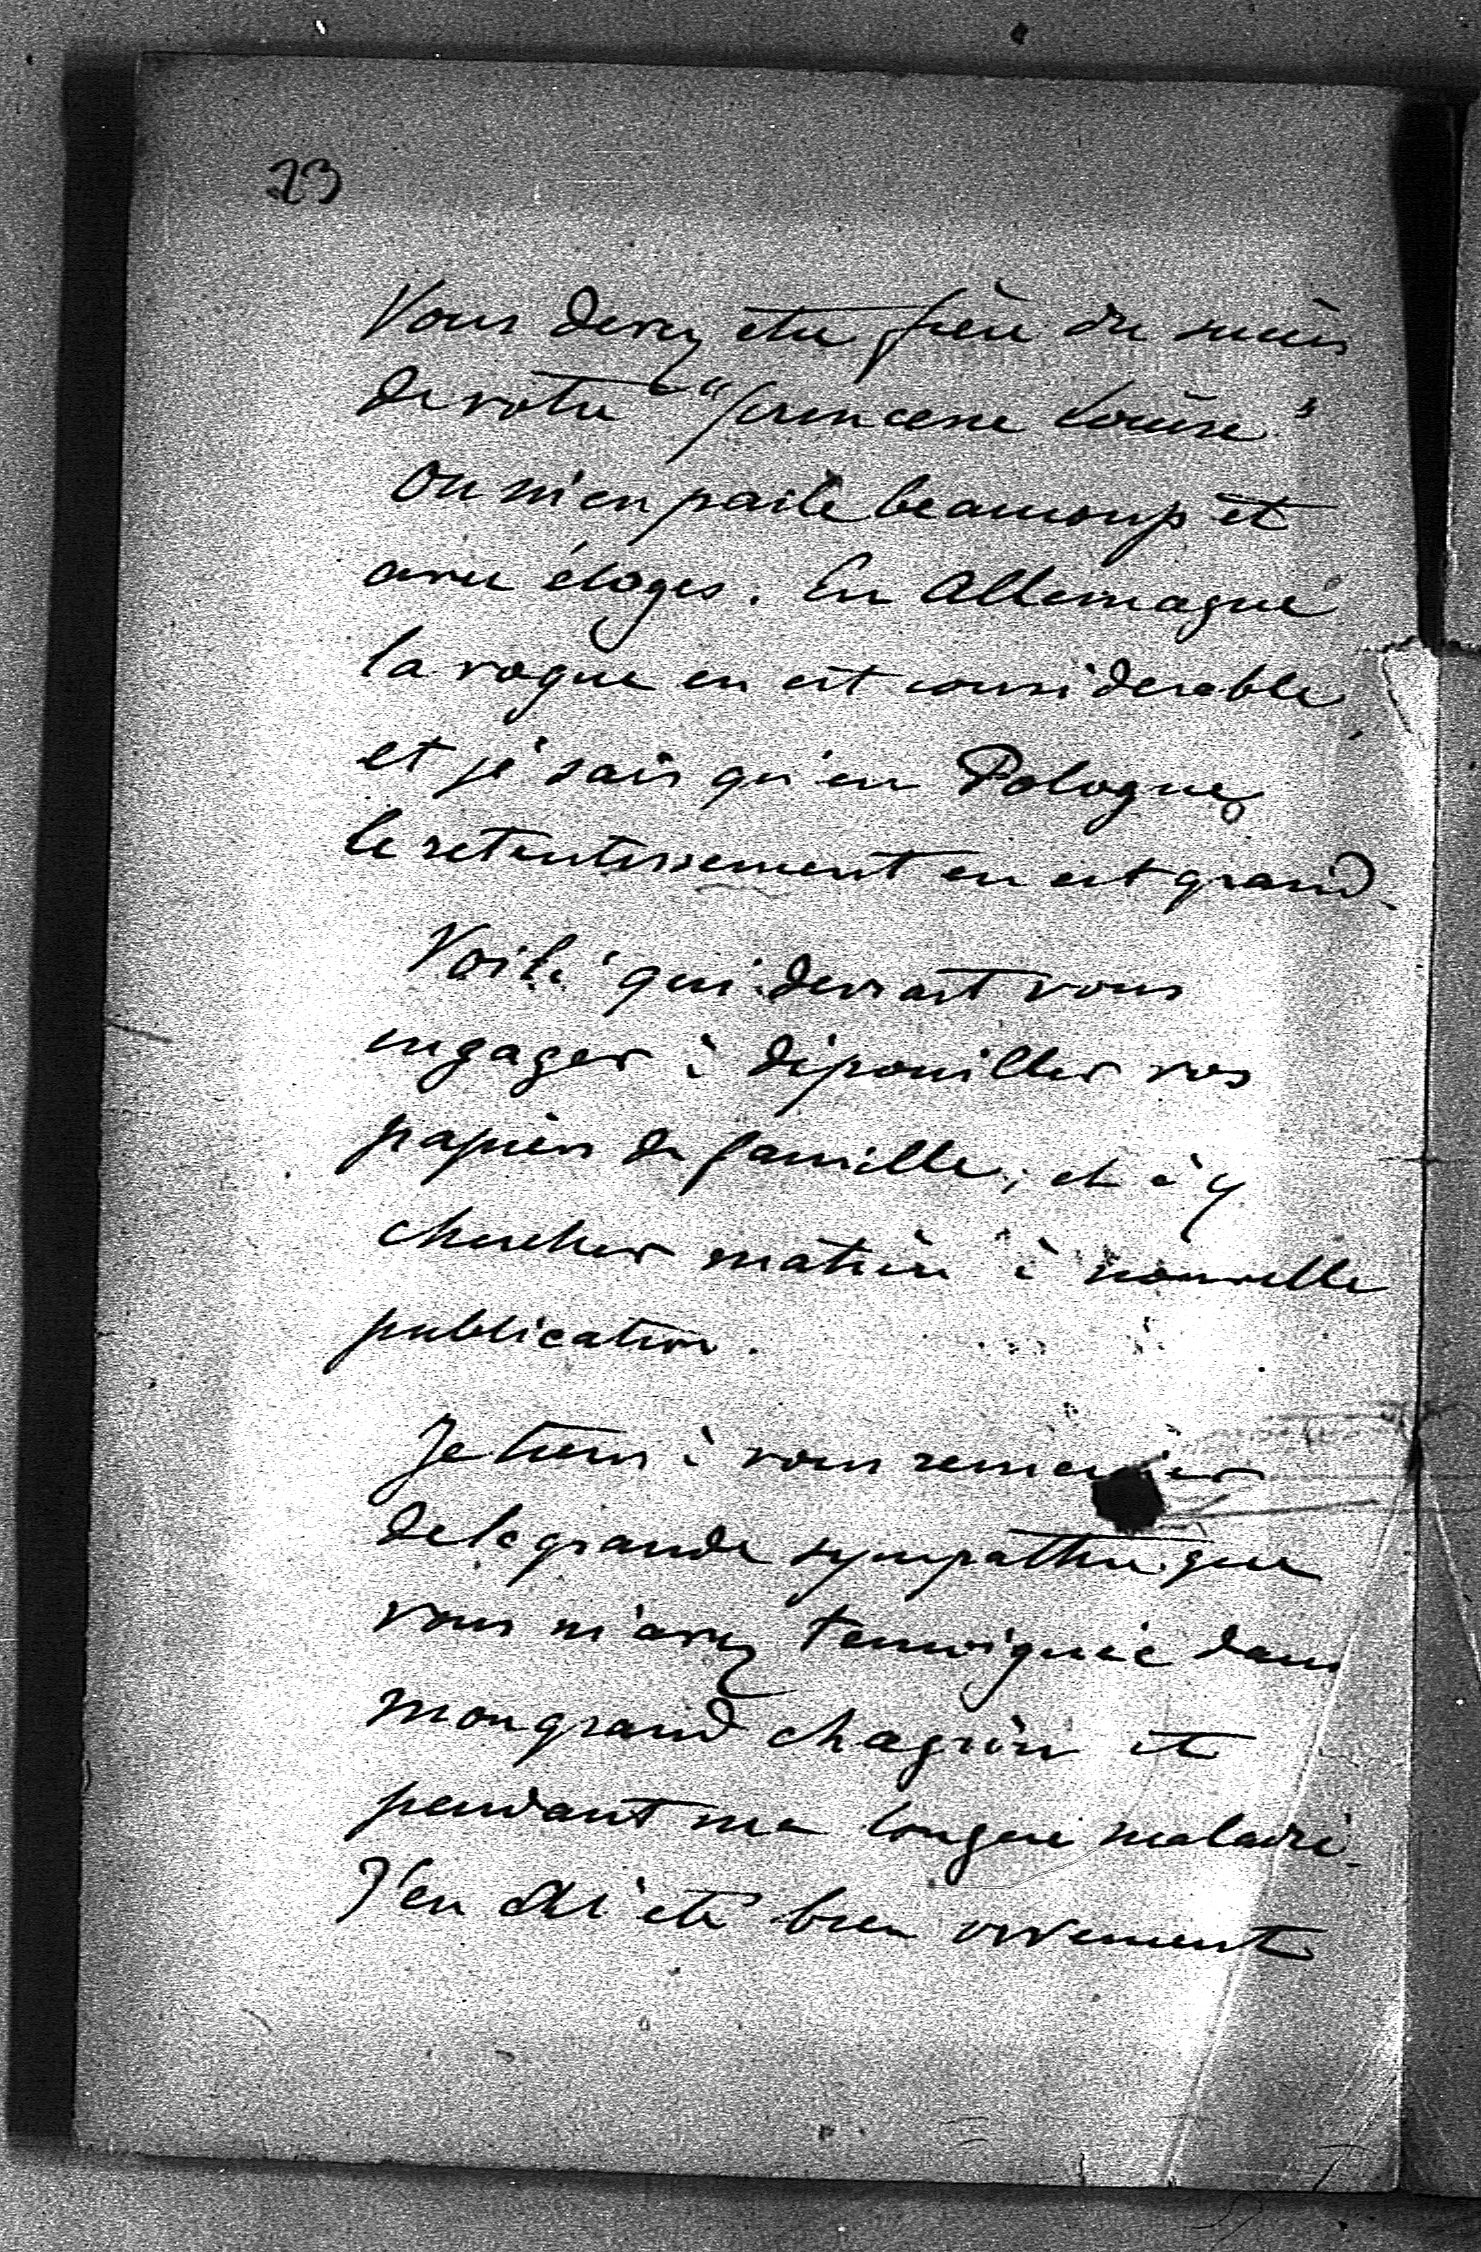 23
Vous devez être fière du succès
de votre "princesse Louise"
On m'en parle beaucoup et
avec éloges. En Allemagne
la vogue en est considerable,
et je sais qu'en Pologne,
le retentissement en est grand.
Voilà qui devrait vous
engager à dépouiller vos
papiers de famille, et à y
chercher matière à nouvelle
publication.
Je tiens à vous remercier
de la grande sympathie que
vous m'avez temoignée dans
mon grand chagrin et
pendant ma longue maladie.
J'en ai été bien vivement